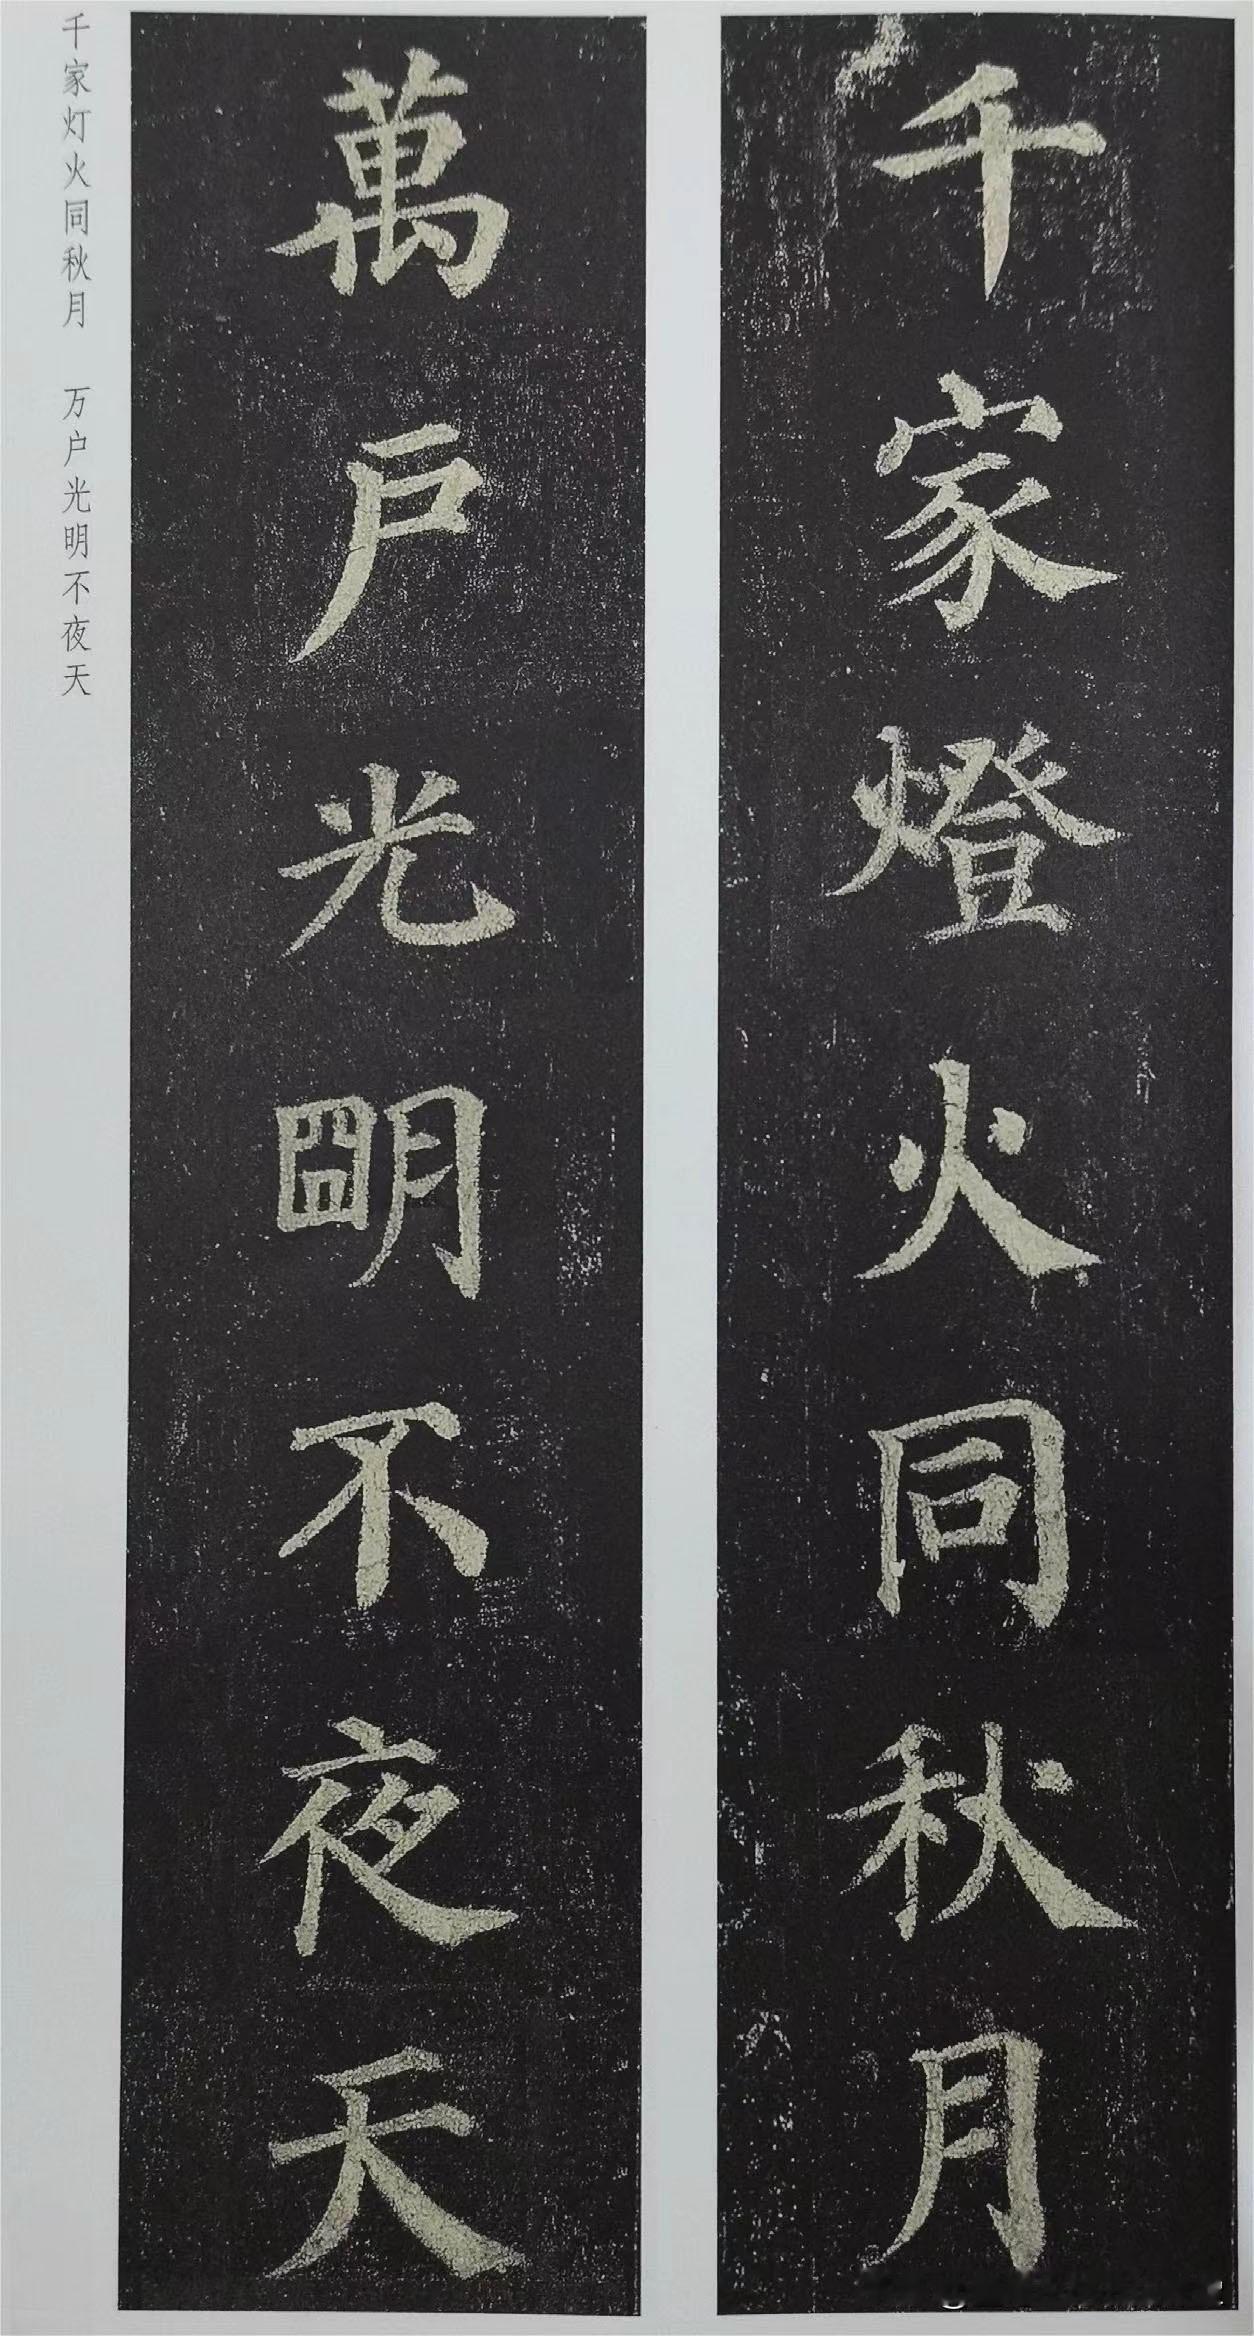 千家燈火同秋月
萬戶光朙不夜天
千家灯火同秋月 万户光明不夜天